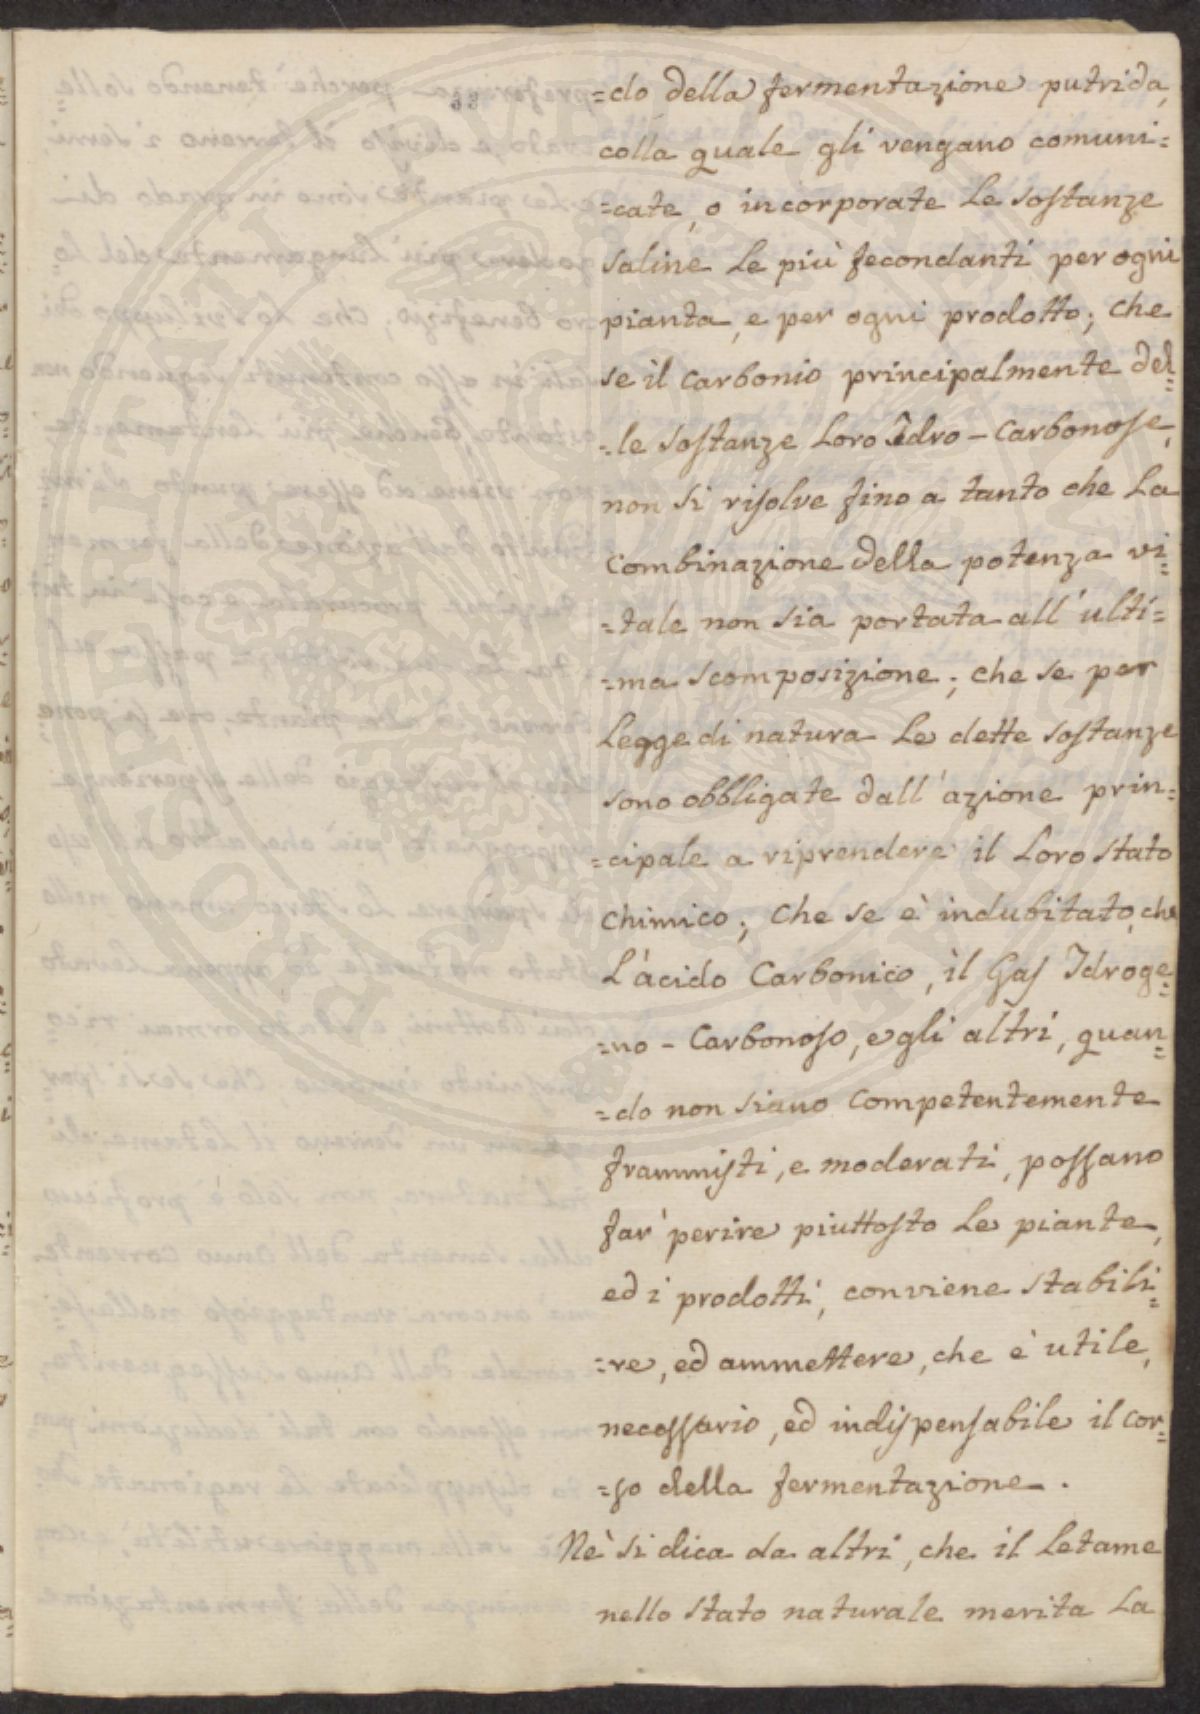 =do della fermentazione putrida,
colla quale gli vengano comuni=
=cate, o incorporate le sostanze
saline le più fecondanti per ogni
pianta, e per ogni prodotto; che
se il carbonio principalmente del=
=le sostanze loro Idro-Carbonose,
non si risolve fino a tanto che la
combinazione della potenza vi=
=tale non sia portata all'ulti=
=ma scomposizione; che se per
legge di natura le dette sostanze
sono obbligate dall'azione prin=
=cipale a riprendere il loro stato
chimico; che se è indubitato, che
l'àcido Carbonico, il Gas Idroge=
=no-Carbonoso, e gli altri, quan=
=do non siano competentemente
frammisti, e moderati, possano
far perire piuttosto le piante,
ed i prodotti, conviene stabili=
=re, ed ammettere, che è utile,
necessario, ed indispensabile il cor=
=so della fermentazione.
Nè si dica da altri, che il letame
nello stato naturale merita la